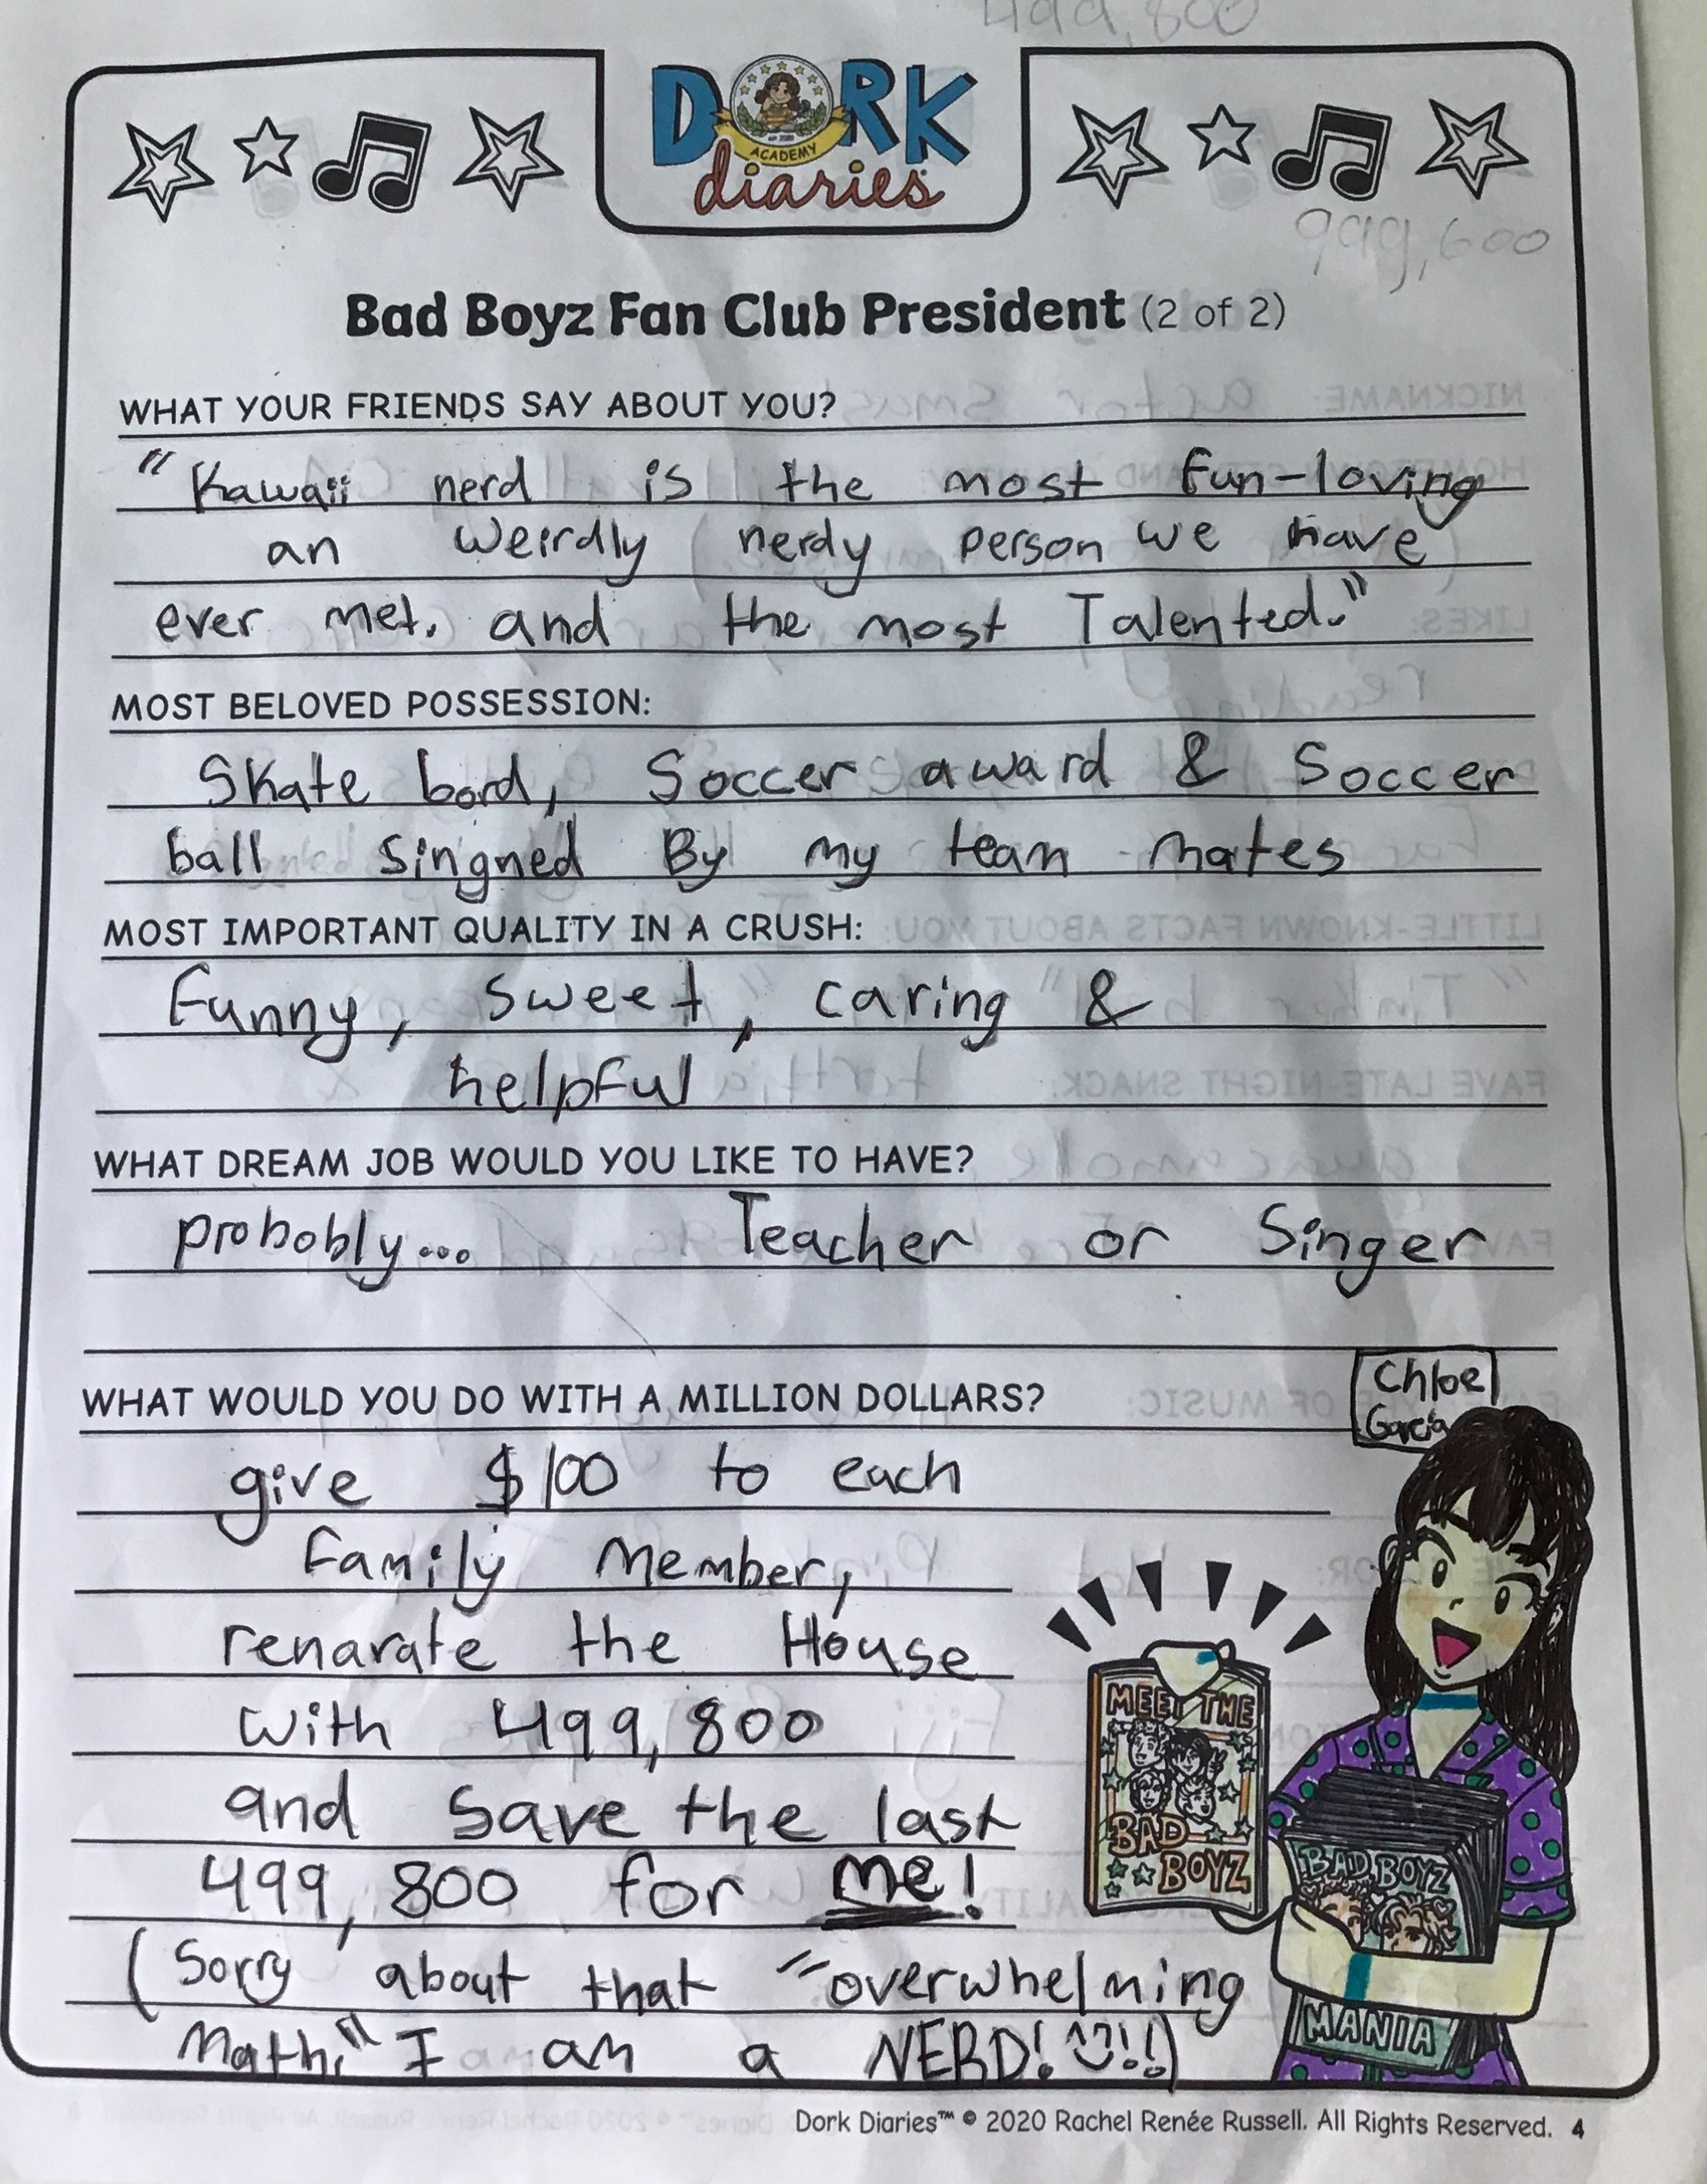 499,800
DORK
EST 2020
ACADEMY
diaries
999,600
Bad Boyz Fan Club President (2 of 2)
WHAT YOUR FRIENDS SAY ABOUT YOU?
"Kawaii nerd is the most fun-loving
an weirdly nerdy person we have
ever met. and the most Talented."
MOST BELOVED POSSESSION:
Skate bord, Soccer award & Soccer
ball singned By my team mates
MOST IMPORTANT QUALITY IN A CRUSH:
Funny, sweet, caring &
helpful
WHAT DREAM JOB WOULD YOU LIKE TO HAVE?
probobly... Teacher or Singer
WHAT WOULD YOU DO WITH A MILLION DOLLARS?
Chloe
Garcia
give $100 to each
family Member,
renarate the House
with 499,800
and save the last
499,800 for me!
(Sorry about that "overwhelming
Math." I am a NERD! !!)
MEET THE
BAD
BOYZ
BAD BOYZ
MANIA
Dork Diaries™ © 2020 Rachel Renée Russell. All Rights Reserved. 4